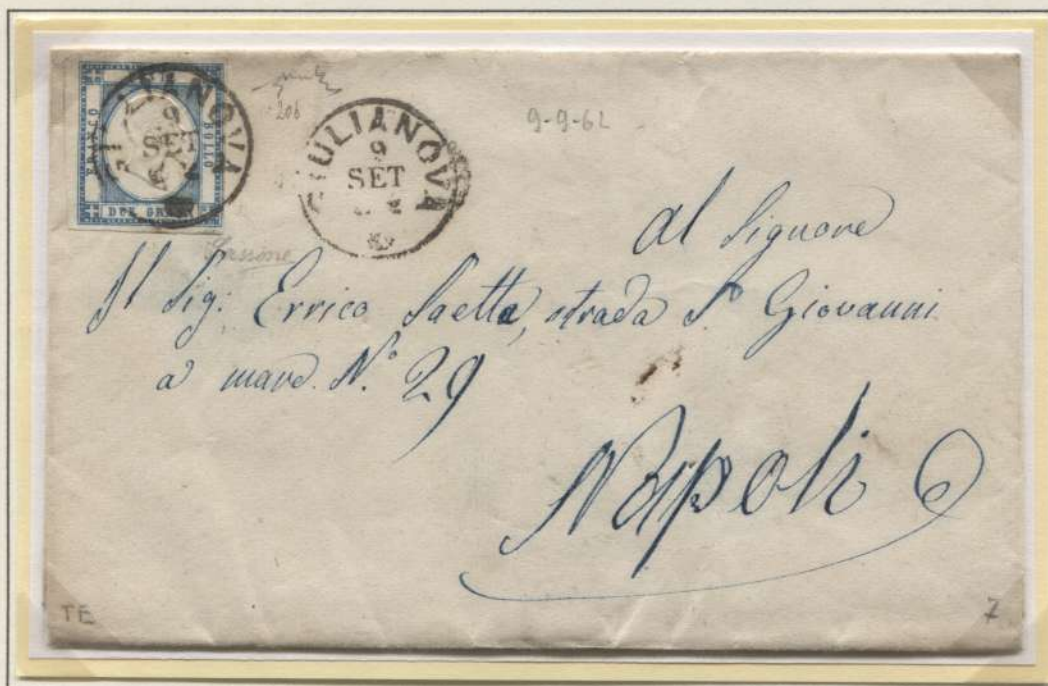 FRANCO
BOLLO
DUE GRANA
GIULIANOVA
9
SET
GIULIANOVA
9
SET
206
9-9-62
Al Signore
Il Sig: Errico Saetta, strada S. Giovanni
a mare. N.° 29
Napoli
TE
7